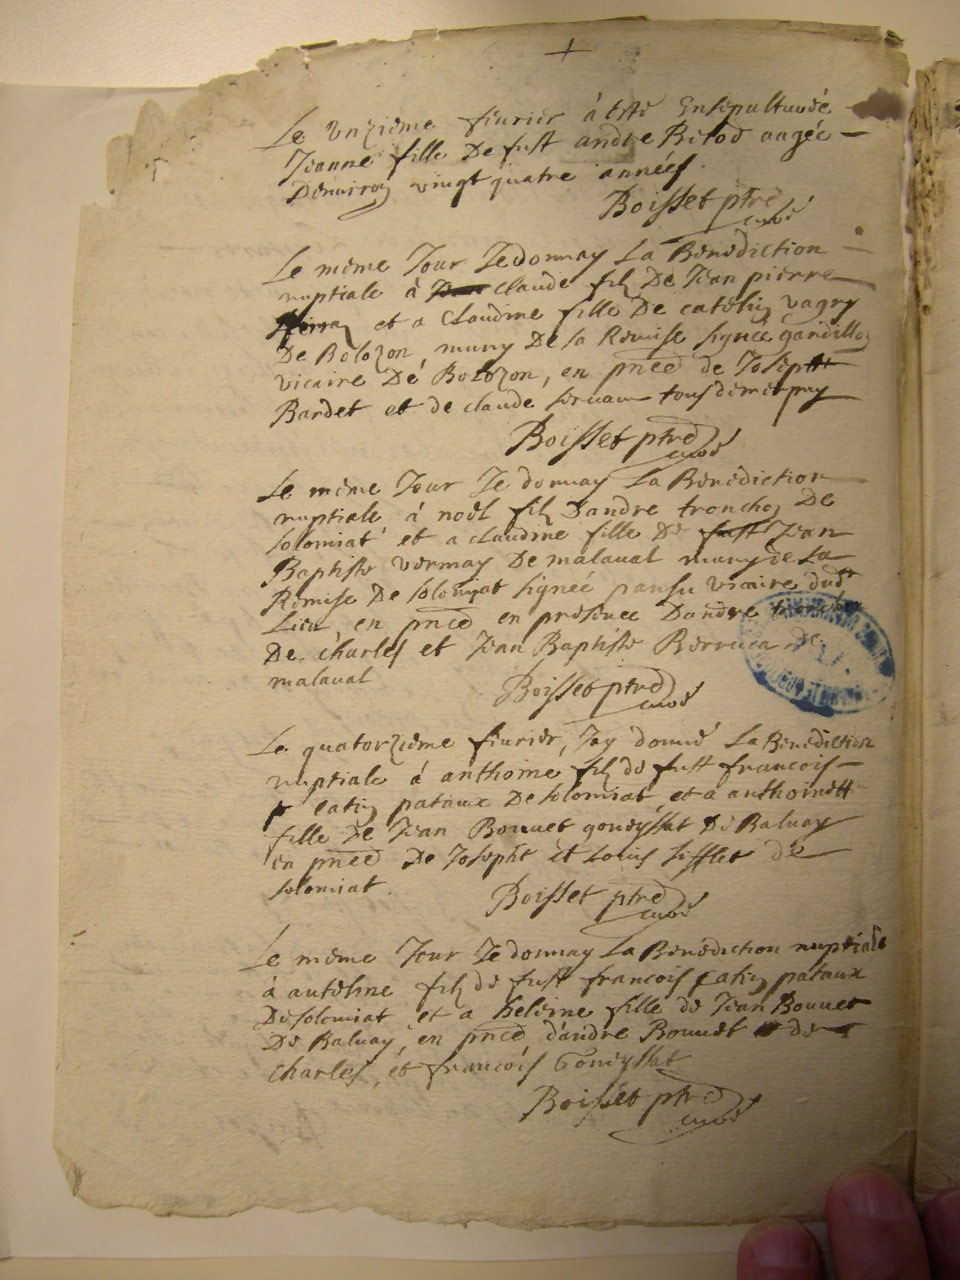 Le Vnzieme feurier à esté Ensepulturée
Jeanne fille De fust andre Bitod aagée
Denuiron vingt quatre années
Boisset ptre curé
Le même Jour Je donnay La Benediction
nuptiale à claude fils De Jean pierre
et a claudine fille De Vagry
De Bolozon, muny De la Remise signée gandillon
vicaire De Bolozon, en pnce de Joseph
Bardet et de claude tous
Boisset ptre curé
Le même Jour Je donnay La Benediction
nuptiale à noël fils Dandre tronchon De
solomiat et a claudine fille De Jean
Baptiste vermay De malaual muny de La
Remise De solomiat signée pansu vicaire dud
Lieu en pnce en presence Dandre
De charles et Jean Baptiste De
malaual
Boisset ptre curé
Le quatorzieme feurier, Jay donné La Benediction
nuptiale à anthoine fils de fust francois
catin pataux De solomiat, et a anthoinett
fille De Jean Bouuet goneyssat De Baluay
en pnce De Joseph et Louis sifflet de
solomiat
Boisset ptre curé
Le même Jour Je donnay La Benediction nuptiale
à antelme fils de fust francois catin pataux
De solomiat et a heleine fille de Jean Bouuet
De Baluay, en pnce d'andre Bouuet de
charles, et francois Goneyssat
Boisset ptre curé